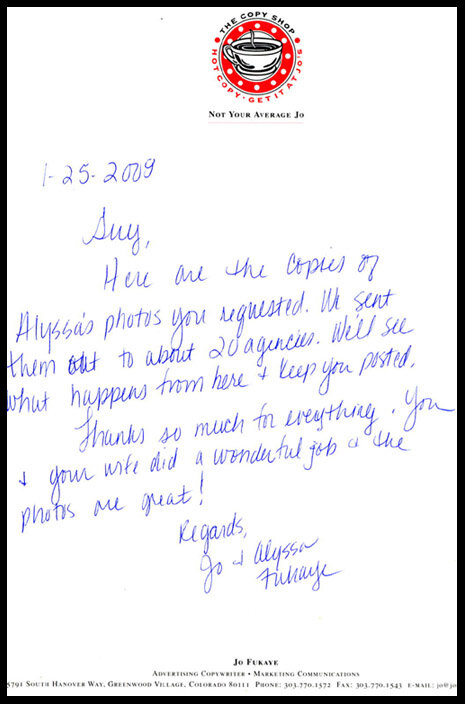 THE COPY SHOP
HOT COPY · GET IT AT JO'S
NOT YOUR AVERAGE JO
1-25-2009
Guy,
Here are the copies of
Alyssa's photos you requested. We sent
them out to about 20 agencies. We'll see
what happens from here & keep you posted.
Thanks so much for everything. You
& your wife did a wonderful job & the
photos are great!
Regards,
Jo & Alyssa
Fukaye
JO FUKAYE
ADVERTISING COPYWRITER • MARKETING COMMUNICATIONS
5791 SOUTH HANOVER WAY, GREENWOOD VILLAGE, COLORADO 80111 PHONE: 303.770.1572 FAX: 303.770.1543 E-MAIL: jo@jo